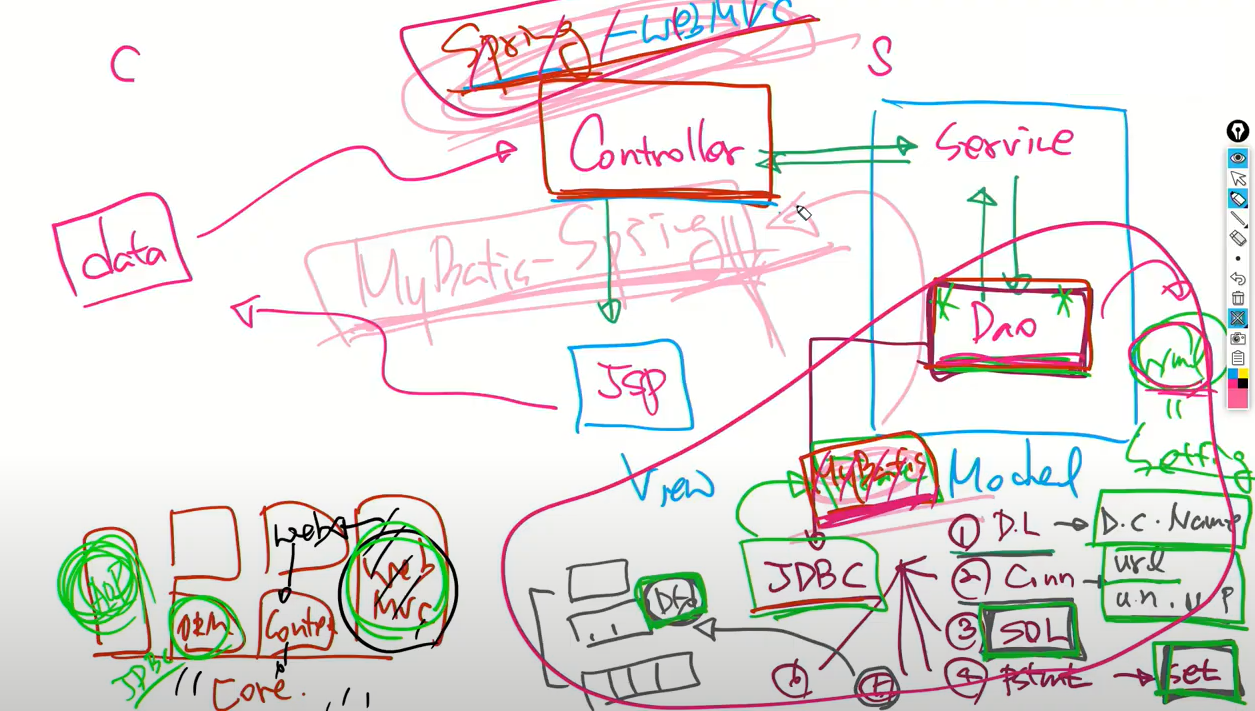 C
Spring-webMVC
S
Controller
Service
data
MyBatis-Spring
Dao
xml
JSP
"
Setting
View
MyBatis
Model
① D.L → D.C.Name
JDBC
② Conn
url
u.n. u.p
③ SQL
④ Pstmt → Set
⑤
⑥
web
AOP
ORM
Contex
Web
MVC
JDBC
Core.